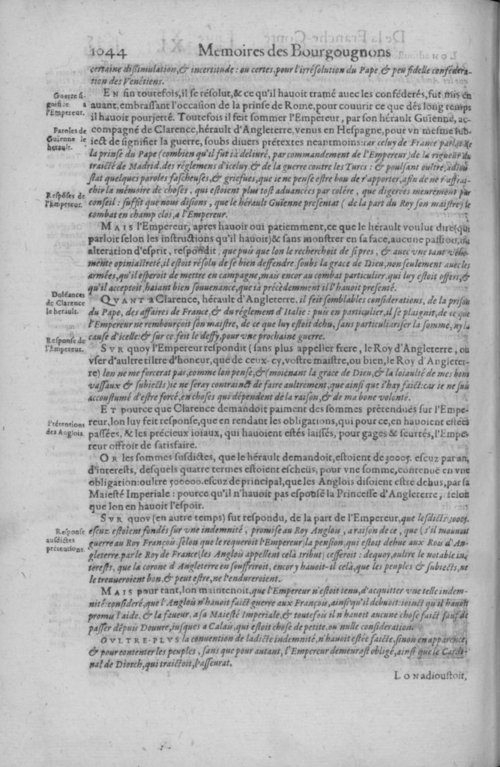 1044 Memoires des Bourgougnons
certaine dissimulation, & incertitude: ou certes, pour l'irrésolution du Pape & peu fidelle confédération
des Venétiens.
EN fin toutefois, il se résolut, & ce qu'il hauoit tramé auec les confédérés, fut mis en
auant, embrassant l'occasion de la prinse de Rome, pour couurir ce que dés long temps
il hauoit pourjetté. Toutefois il feit sommer l'Empereur, par son hérault Guïenne, ac-
compagné de Clarence, hérault d'Angleterre, venus en Hespagne, pour vn mesme sub-
iect de signifier la guerre, soubs diuers prétextes neantmoins: car celuy de France parla de
la prinse du Pape (combien qu'il fut ià deliuré, par commandement de l'Empereur) de la rigueur du
traicté de Madrid, des réglemens d'iceluy, & de la guerre contre les Turcs: & poulsant oultre, adiou-
stat quelques paroles fascheuses, & griefues, que ie ne pense estre bon de rapporter, afin de ne rafrai-
chir la mémoire de choses, qui estoient plus tost aduancées par colére, que digerées meurement par
conseil: suffit que nous disions, que le hérault Guïenne presentat (de la part du Roy son maistre) le
combat en champ clos, a l'Empereur.
MAIS l'Empereur, apres hauoir ouï patiemment, ce que le hérault voulut dire (qui
parloit selon les instructions qu'il hauoit) & sans monstrer en sa face, aucune passion, ou
alteration d'esprit, respondit, que puis que lon le recherchoit de si pres, & auec vne tant vehe-
mente opiniatreté, il estoit résolu de se bien deffendre, soubs la grace de Dieu, non seulement auec les
armées, qu'il esperoit de mettre en campagne, mais encor au combat particulier, qui luy estoit offert, &
qu'il acceptoit, haiant bien souuenance, que ia précédemment il l'hauoit presenté.
QUANT a Clarence, hérault d'Angleterre, il feit semblables considerations, de la prison
du Pape, des affaires de France, & du réglement d'Italie: puis en particulier, il se plaignit, de ce que
l'Empereur ne rembourçoit son maistre, de ce que luy estoit dehu, sans particulariser la somme, ny la
cause d'icelle: & sur ce feit le deffy, pour vne prochaine guerre.
SVR quoy l'Empereur respondit (sans plus appeller frere, le Roy d'Angleterre, ou
vser d'aultre tiltre d'honeur, que de ceux-cy, vostre maistre, ou bien, le Roy d'Anglete-
re) lon ne me forcerat pas, comme lon pense, & (moienant la grace de Dieu, & la loiaulté de mes bons
vassaux & subiects) ie ne seray contrainct de faire aultrement, que ainsi que i'hay faict: car ie ne suis
accoustumé d'estre forcé, en choses qui dépendent de la raison, & de ma bone volonté.
ET pource que Clarence demandoit paiment des sommes prétendues sur l'Empe-
reur, lon luy feit response, que en rendant les obligations, qui pour ce, en hauoient estées
passées, & les précieux ioiaux, qui hauoient estés laissés, pour gages & seurtés, l'Empe-
reur offroit de satisfaire.
OR les sommes susdictes, que le hérault demandoit, estoient de 30005. escuz par an,
d'interests, desquels quatre termes estoient escheus, pour vne somme, contenue en vne
obligation: oultre 500000. escuz de principal, que les Anglois disoient estre dehus, par sa
Maiesté Imperiale: pource qu'il n'hauoit pas espousé la Princesse d'Angleterre, selon
que lon en hauoit l'espoir.
SVR quoy (en autre temps) fut respondu, de la part de l'Empereur, que lesdicts 30005.
escuz estoient fondés sur vne indemnité, promise au Roy Anglois, a raison de ce, que (s'il mouuoit
guerre au Roy François, selon que le requeroit l'Empereur) la pension, qui estoit dehue aux Rois d'An-
gleterre, par le Roy de France, (les Anglois appellent celà tribut) cesseroit: dequoy, oultre le notable in-
terests, que la corone d'Angleterre en souffriroit, encor y hauoit-il celà, que les peuples & subiects, ne
le treuueroient bon, & peut estre, ne l'endureroient.
MAIS pour tant, lon maintenoit, que l'Empereur n'estoit tenu, d'acquitter vne telle indem-
nité: consideré, que l'Anglois n'hauoit faict guerre aux François, ainsi qu'il debuoit: ioinct qu'il hauoit
promis l'aide, & la faueur, a sa Maiesté Imperiale, & toutefois il n hauoit aucune chose faict sauf de
passer dépuis Douure, iusques a Calais, qui estoit chose de petite, ou nulle consideration.
OULTRE-PLVS la conuention de ladicte indemnité, n'hauoit estée faicte, sinon en apparence,
& pour contenter les peuples, sans que pour autant, l'Empereur demeurast obligé, ainsi que le Cardi-
nal de Diorch, qui traictoit, l'asseurat.
LON adioustoit,
Guerre signifiée a l'Empereur.
Paroles de Guïenne le herault.
Resposes de l'Empereur.
Doléances de Clarence le herault.
Response de l'Empereur.
Prétentions des Anglois.
Response ausdictes prétensions.